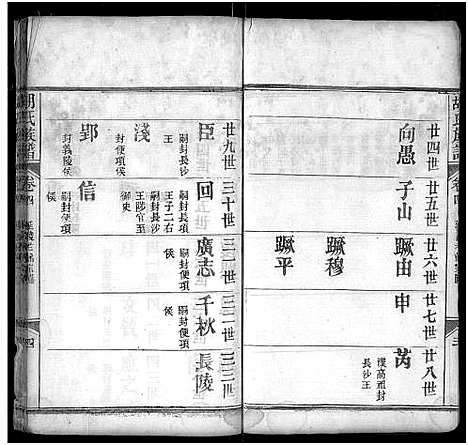 廿四世 向愚
廿五世 子山
廿六世 蹶由 蹶穆 蹶平
廿七世 申
廿八世 芮
漢高祖封
長沙王
廿九世 臣
嗣封長沙
王
淺
封便項侯
郢
封義陵侯
三十世 回
嗣封長沙
王子二右
王陟官至
御史
信
嗣封便項
侯
三一世 廣志
嗣封便項
侯
三二世 千秋
嗣封便項
侯
三三世 長陵
胡氏族譜
卷四
四